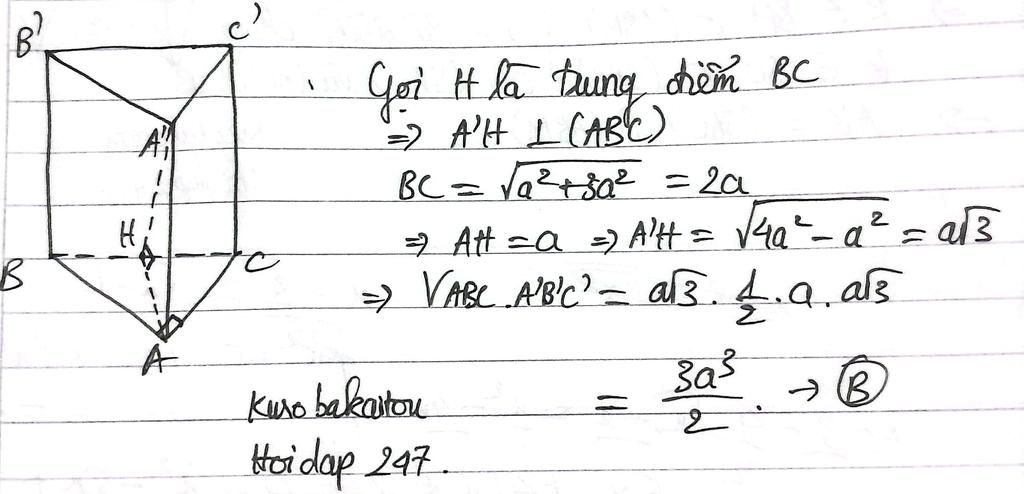 B' C'
A'
H
B C
A
Gọi H là trung điểm BC
=> A'H ⊥ (ABC)
BC = √(a² + 3a²) = 2a
=> AH = a => A'H = √(4a² - a²) = a√3
=> VABC.A'B'C' = a√3 . 1/2 . a . a√3
= 3a³/2 . → Ⓑ
Kuro bakaitou
Hoidap 247.